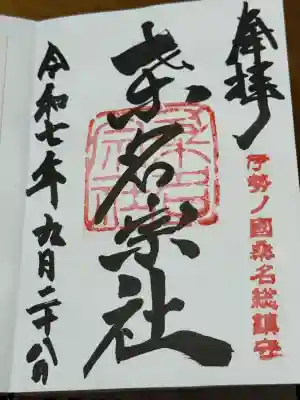 奉拝
伊勢ノ國桑名総鎮守
桑名宗社
桑名宗社
令和七年九月二十八日